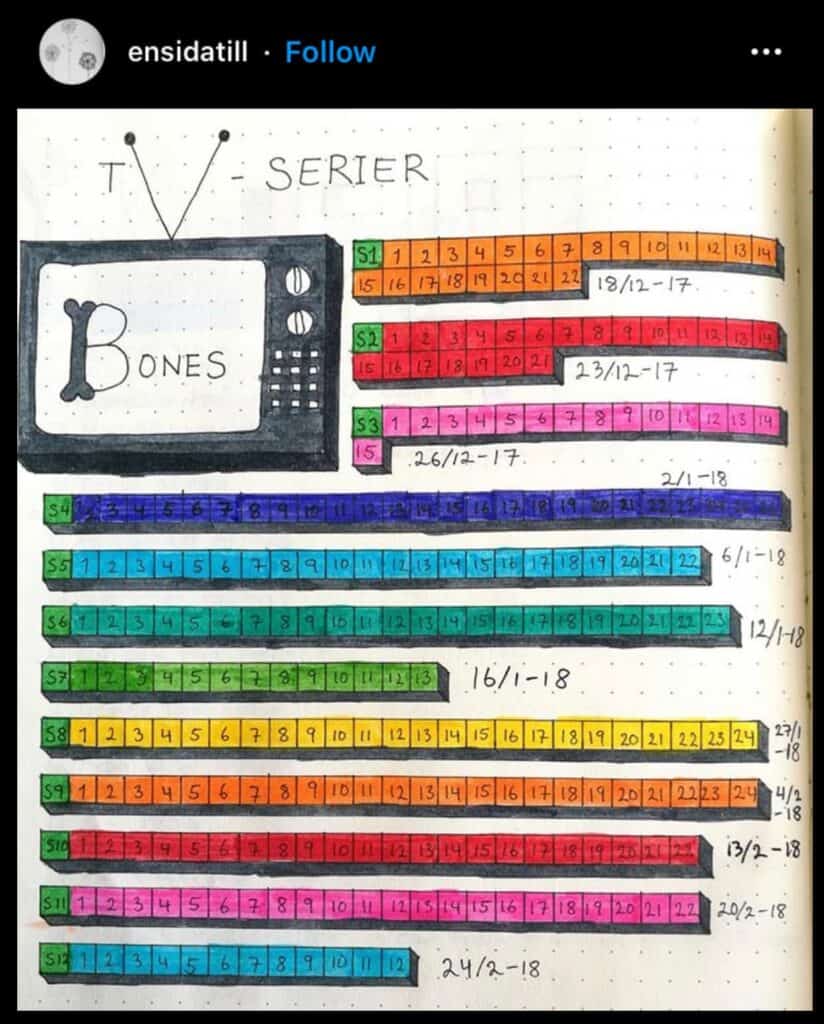 ensidatill · Follow
TV - SERIER
BONES
S1 1 2 3 4 5 6 7 8 9 10 11 12 13 14
15 16 17 18 19 20 21 22 18/12-17
S2 1 2 3 4 5 6 7 8 9 10 11 12 13 14
15 16 17 18 19 20 21 23/12-17
S3 1 2 3 4 5 6 7 8 9 10 11 12 13 14
15 26/12-17
2/1-18
S4 1 2 3 4 5 6 7 8 9 10 11 12 13 14 15 16 17 18 19 20 21 22 23
S5 1 2 3 4 5 6 7 8 9 10 11 12 13 14 15 16 17 18 19 20 21 22 6/1-18
S6 1 2 3 4 5 6 7 8 9 10 11 12 13 14 15 16 17 18 19 20 21 22 23 12/1-18
S7 1 2 3 4 5 6 7 8 9 10 11 12 13 16/1-18
S8 1 2 3 4 5 6 7 8 9 10 11 12 13 14 15 16 17 18 19 20 21 22 23 24 27/1
-18
S9 1 2 3 4 5 6 7 8 9 10 11 12 13 14 15 16 17 18 19 20 21 22 23 24 4/2
-18
S10 1 2 3 4 5 6 7 8 9 10 11 12 13 14 15 16 17 18 19 20 21 22 13/2-18
S11 1 2 3 4 5 6 7 8 9 10 11 12 13 14 15 16 17 18 19 20 21 22 20/2-18
S12 1 2 3 4 5 6 7 8 9 10 11 12 24/2-18